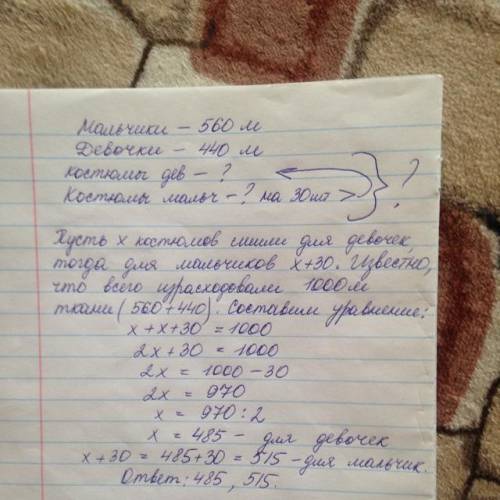 Мальчики – 560 м
Девочки – 440 м
костюмы дев – ?
Костюмы мальч – ? на 30 шт > } ?
Пусть x костюмов сшили для девочек,
тогда для мальчиков x+30. Известно,
что всего израсходовали 1000 м
ткани (560+440). Составим уравнение:
x + x + 30 = 1000
2x + 30 = 1000
2x = 1000 – 30
2x = 970
x = 970 : 2
x = 485 – для девочек
x+30 = 485+30 = 515 – для мальчик.
Ответ: 485, 515.